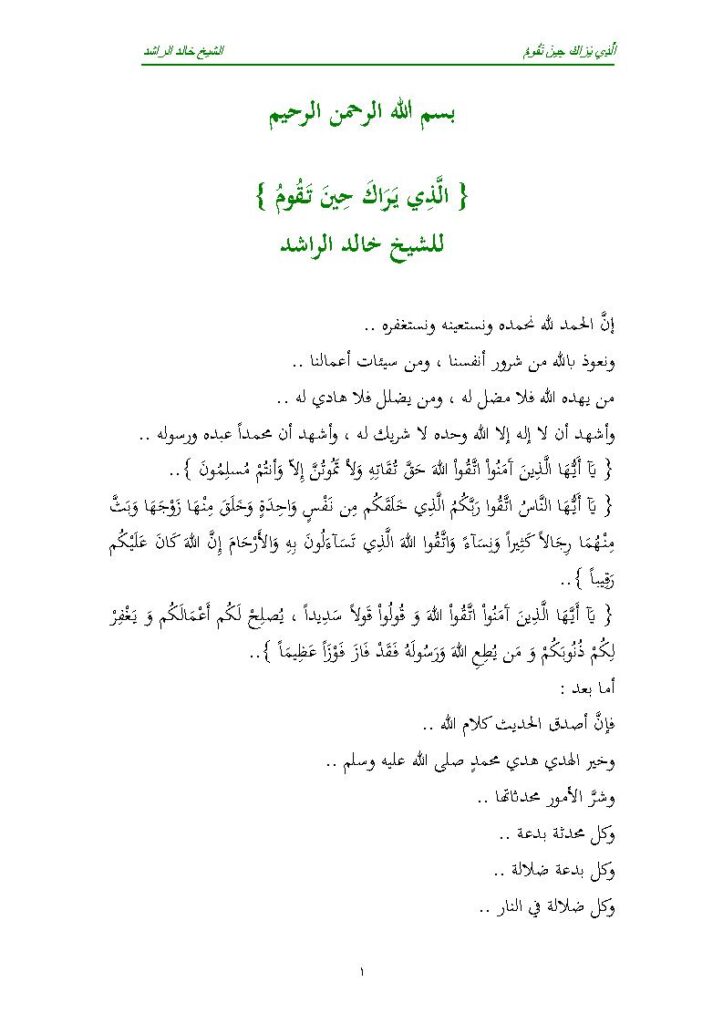 الَّذِي يَرَاكَ حِينَ تَقُومُ الشيخ خالد الراشد
بسم الله الرحمن الرحيم
{ الَّذِي يَرَاكَ حِينَ تَقُومُ }
للشيخ خالد الراشد
إنَّ الحمد لله نحمده ونستعينه ونستغفره ..
ونعوذ بالله من شرور أنفسنا ، ومن سيئات أعمالنا ..
من يهده الله فلا مضل له ، ومن يضلل فلا هادي له ..
وأشهد أن لا إله إلا الله وحده لا شريك له ، وأشهد أن محمداً عبده ورسوله ..
{ يَآ أَيُّهَا الَّذِينَ آمَنُواْ اتَّقُواْ اللهَ حَقَّ تُقَاتِهِ وَلاَ تَمُوتُنَّ إِلاّ وَأنتُمْ مُسلِمُونَ }..
{ يَآ أَيُّهَا النَّاسُ اتَّقُوا رَبَّكُمُ الَّذِي خَلَقَكُم مِن نَفْسٍ وَاحِدَةٍ وَخَلَقَ مِنْهَا زَوْجَهَا وَبَثَّ
مِنْهُمَا رِجَالاً كَثِيراً وَنِسَآءً وَاتَّقُوا اللهَ الَّذِي تَسَآءَلُونَ بِهِ وَالأَرْحَامَ إِنَّ اللهَ كَانَ عَلَيْكُم
رَقِيباً }..
{ يَآ أَيَّهَا الَّذِينَ آمَنُواْ اتَّقُواْ اللهَ وَ قُولُواْ قَولاً سَدِيداً ، يُصلِحْ لَكُم أَعْمَالَكُم وَ يَغْفِرْ
لِكُمْ ذُنُوبَكُمْ وَ مَن يُطِعِ اللهَ وَرَسُولَهُ فَقَدْ فَازَ فَوْزَاً عَظِيمَاً }..
أما بعد :
فإنَّ أصدق الحديث كلام الله ..
وخير الهدي هدي محمدٍ صلى الله عليه وسلم ..
وشرَّ الأمور محدثاتها ..
وكل محدثة بدعة ..
وكل بدعة ضلالة ..
وكل ضلالة في النار ..
١